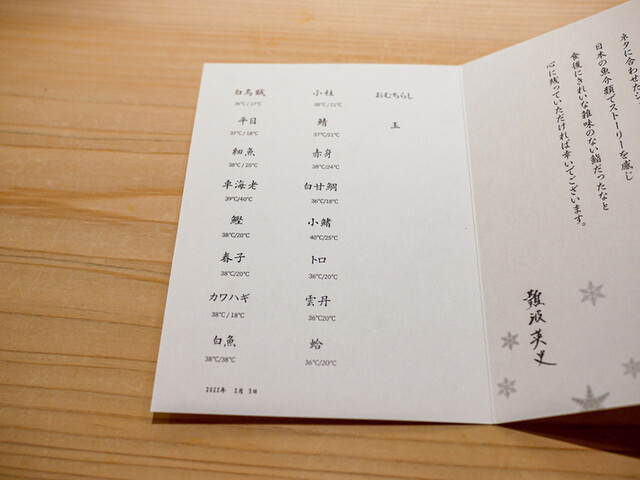 白烏賊
36℃ / 17℃
平目
37℃ / 18℃
細魚
38℃ / 20℃
車海老
39℃/40℃
鰹
38℃/20℃
春子
38℃/20℃
カワハギ
38℃ / 18℃
白魚
38℃/38℃
小柱
38℃ / 21℃
鯖
37℃/21℃
赤身
38℃/24℃
白甘鯛
36℃/18℃
小鰭
40℃/25℃
トロ
36℃/20℃
雲丹
36℃20℃
蛤
36℃/20℃
おむちらし
玉
2022年 2月
ネタに合わせたシ
日本の魚介類でストーリーを感じ
食後にきれいな雑味のない鮨だったなと
心に残っていただければ幸いでございます。
難波英史